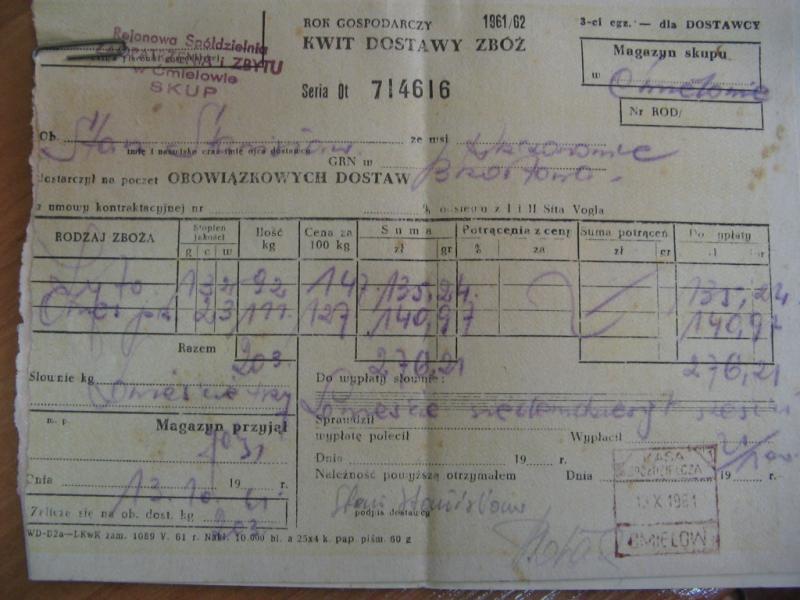 Rejonowa Spółdzielnia
ZAOPATRZENIA I ZBYTU
w Ćmielowie
SKUP
ROK GOSPODARCZY 1961/62
KWIT DOSTAWY ZBÓŻ
Seria Dt 714616
3-ci egz. — dla DOSTAWCY
Magazyn skupu
w Ćmielowie
Nr ROD/
Ob. Stan Stanisław ze wsi
imię i nazwisko oraz imię ojca dostawcy
GRN w
dostarczył na poczet OBOWIĄZKOWYCH DOSTAW
z umowy kontraktacyjnej nr % odsiewu z I i II Sita Vogla
RODZAJ ZBOŻA Stopień jakości Ilość kg Cena za 100 kg Suma Potrącenia z ceny Suma potrąceń Do wypłaty
g c w zł gr % za zł gr zł gr
Żyto 13 2 92 147 135,24 135,24
23 111 127 140,97 140,97
Razem 203 276,21 276,21
Słownie kg dwieście trzy
Do wypłaty słownie:
Dwieście siedemdziesiąt sześć
m. p. Magazyn przyjął
Sprawdził
wypłatę polecił Wypłacił
Dnia 19 r.
Należność powyższą otrzymałem Dnia 19 r.
Dnia 13.10.61 19 r.
Stan Stanisław
podpis dostawcy
Zalicza się na ob. dost. kg 203
KASA
SPÓŁDZIELCZA
13 X 1961
ĆMIELÓW
WD-D2a—LKwK zam. 1089 V. 61 r. Nakł. 10.000 bl. a 25x4 k. pap. piśm. 60 g